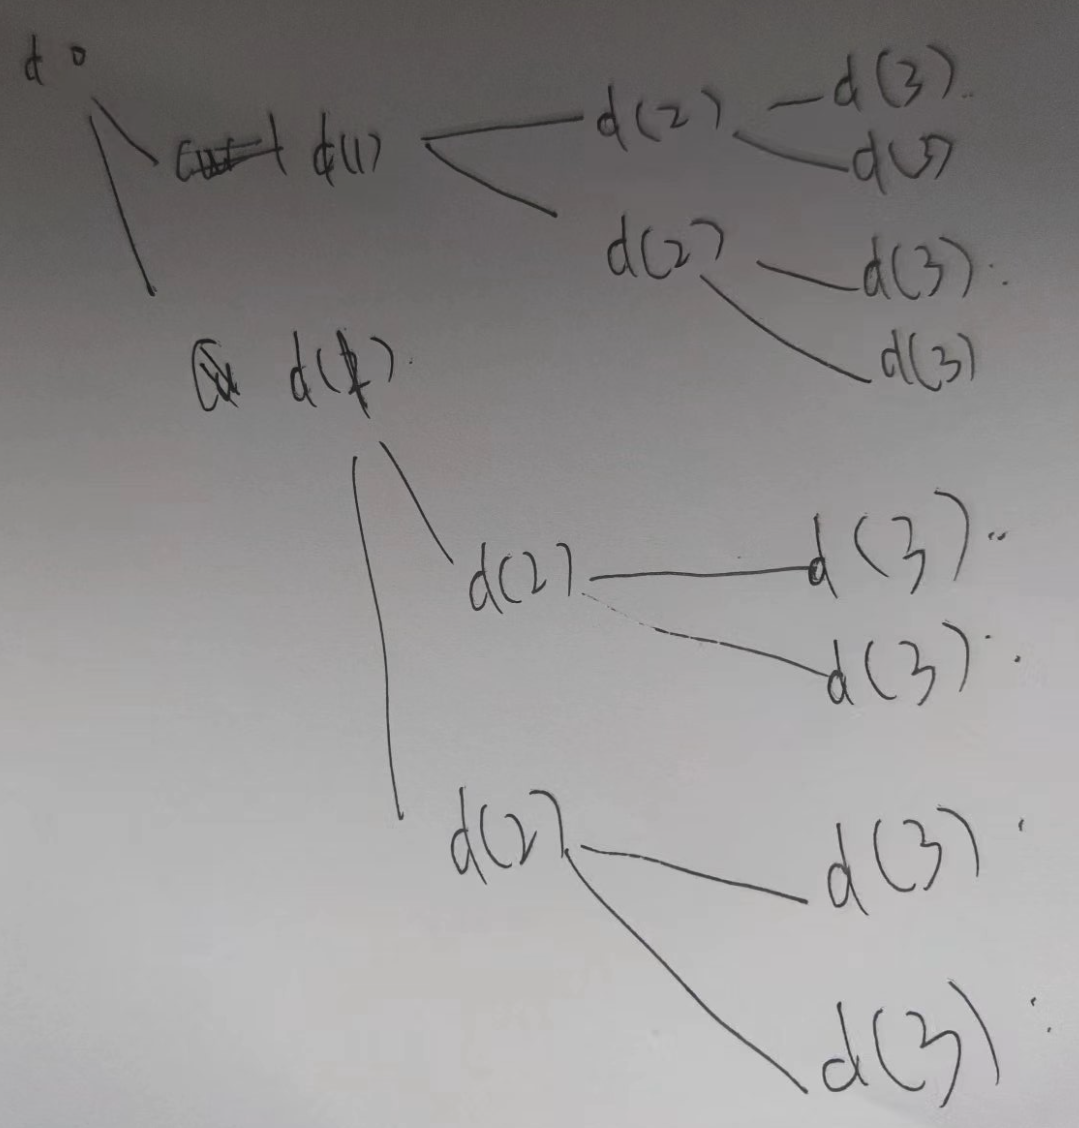 d 0
d(1)
d(2)
d(3)
d(3)
d(2)
d(3)
d(3)
d(1)
d(2)
d(3)
d(3)
d(2)
d(3)
d(3)